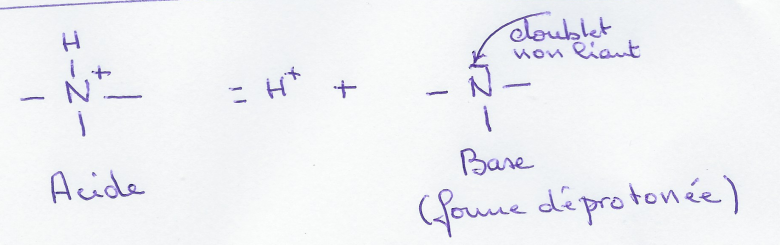 doublet
non liant
H
N+ = H+ + N
Acide
Base
(forme déprotonée)